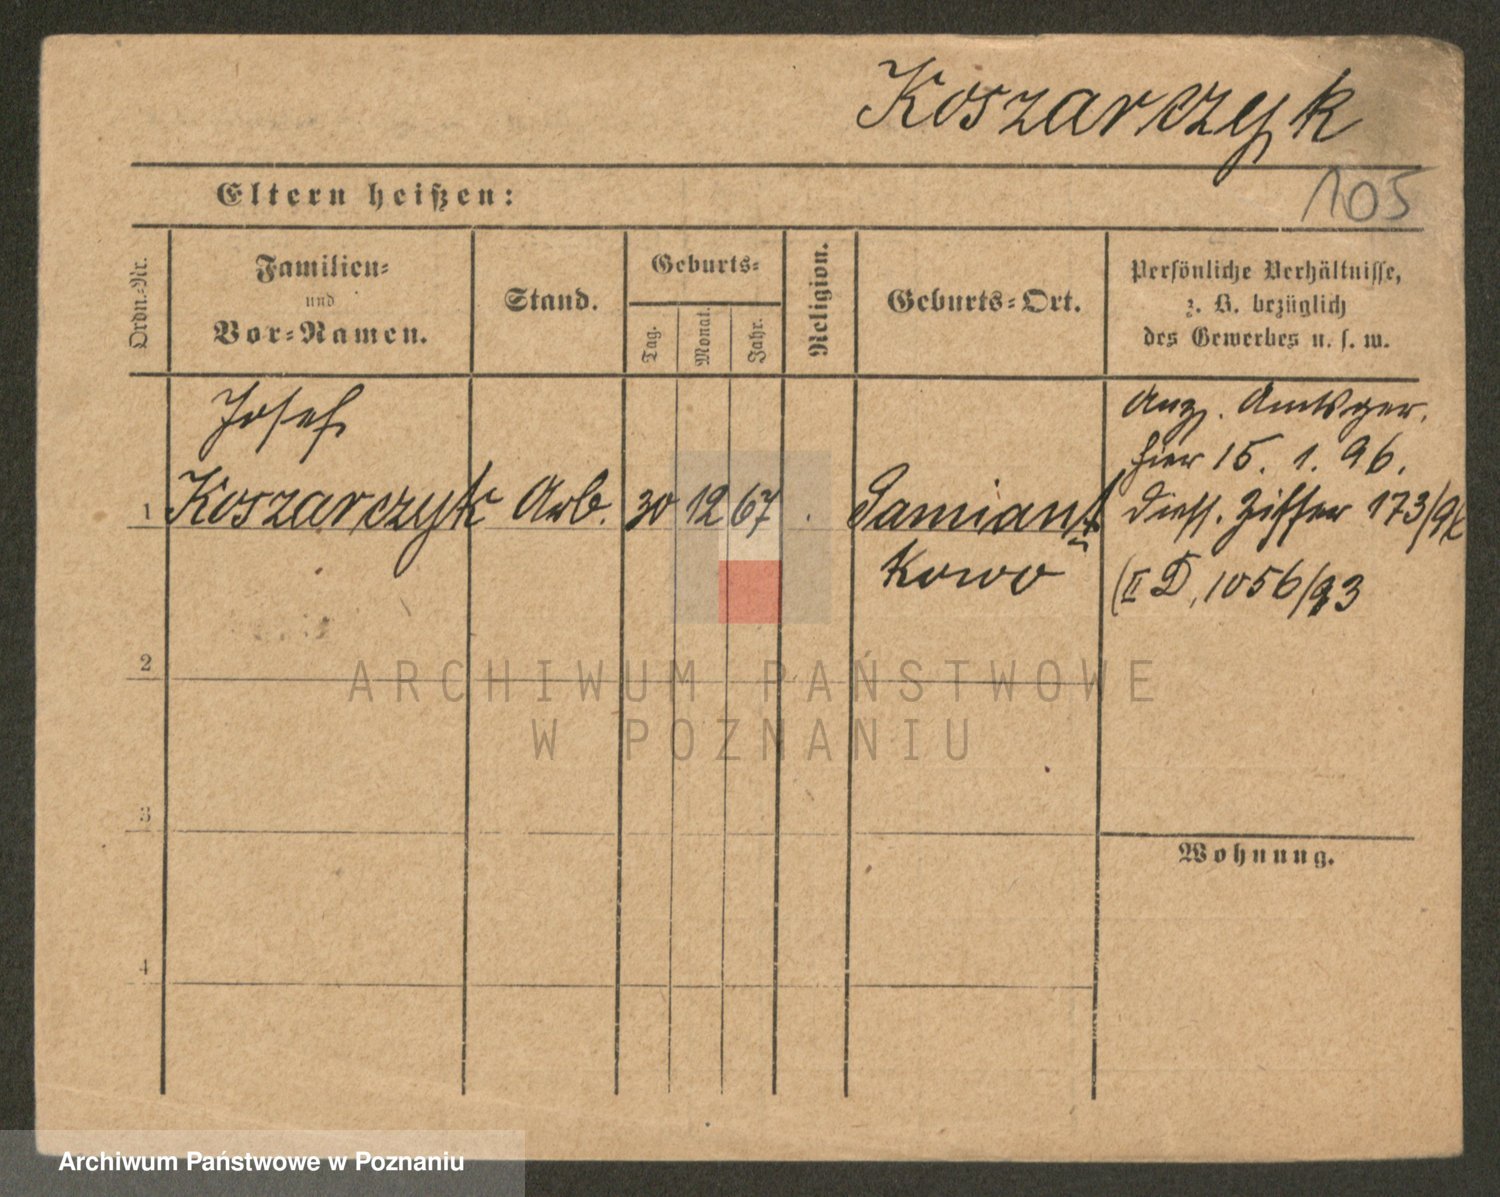 Koszarczyk
105
Eltern heißen:
Ordn.-Nr.
Familien-
und
Vor-Namen.
Stand.
Geburts-
Tag.
Monat.
Jahr.
Religion.
Geburts-Ort.
Persönliche Verhältnisse,
z. B. bezüglich
des Gewerbes u. s. w.
1
Josef
Koszarczyk
Arb.
30
12
67
Samiant
kowo
Anz. Amtsger.
hier 15. 1. 96.
Ziffer 173/96
(II D, 1056/93
2
3
4
Wohnung.
ARCHIWUM PAŃSTWOWE
W POZNANIU
Archiwum Państwowe w Poznaniu